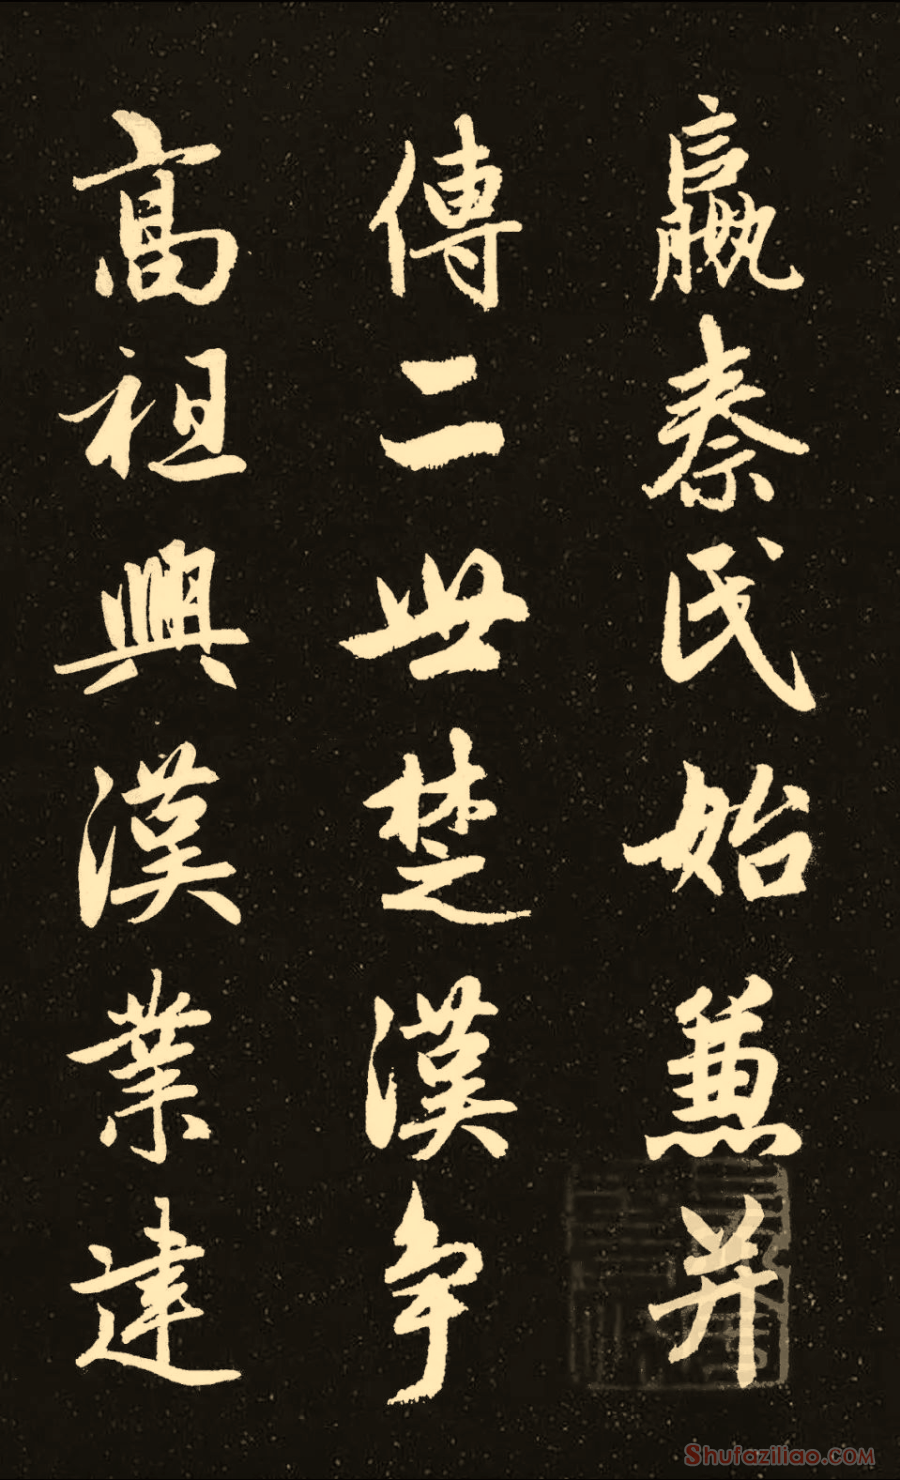 嬴秦氏始兼并
傳二世楚漢争
高祖興漢業建
Shufaziliao.com